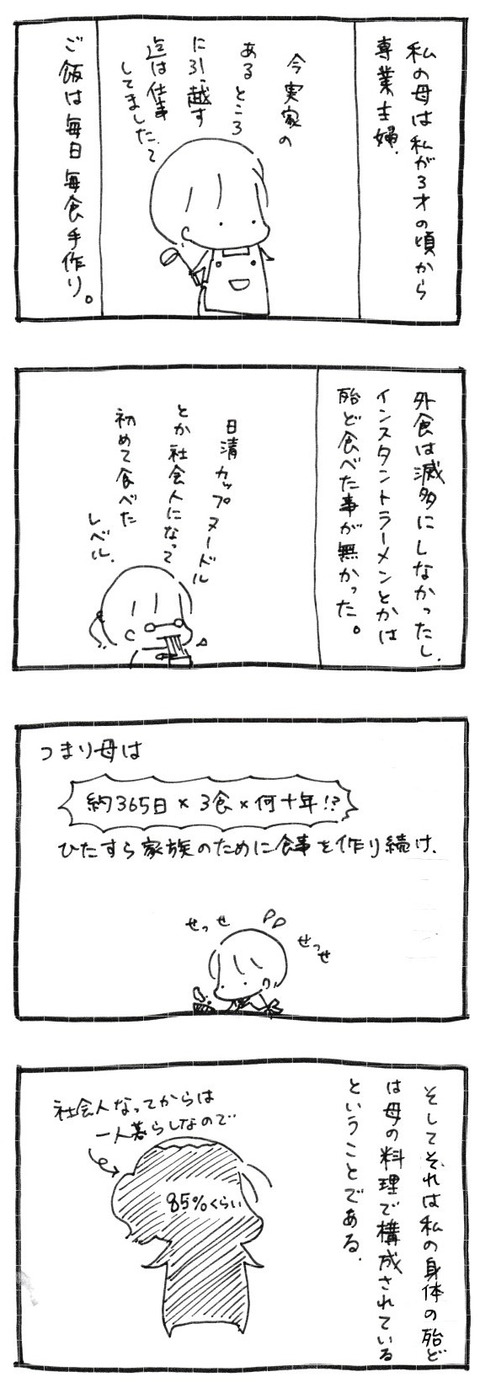 私の母は私が3才の頃から
専業主婦.
今実家の
あるところ
に引っ越す
迄は仕事
してました、て
ご飯は毎日毎食手作り。
外食は滅多にしなかったし.
インスタントラーメンとかは
殆ど食べた事が無かった。
日清カップヌードル
とか社会人になって
初めて食べた
レベル.
つまり母は
約365日×3食×何十年!?
ひたすら家族のために食事を作り続け.
せっせ
せっせ
そしてそれは私の身体の殆ど
は母の料理で構成されている
ということである.
社会人なってからは
一人暮らしなので
85%くらい